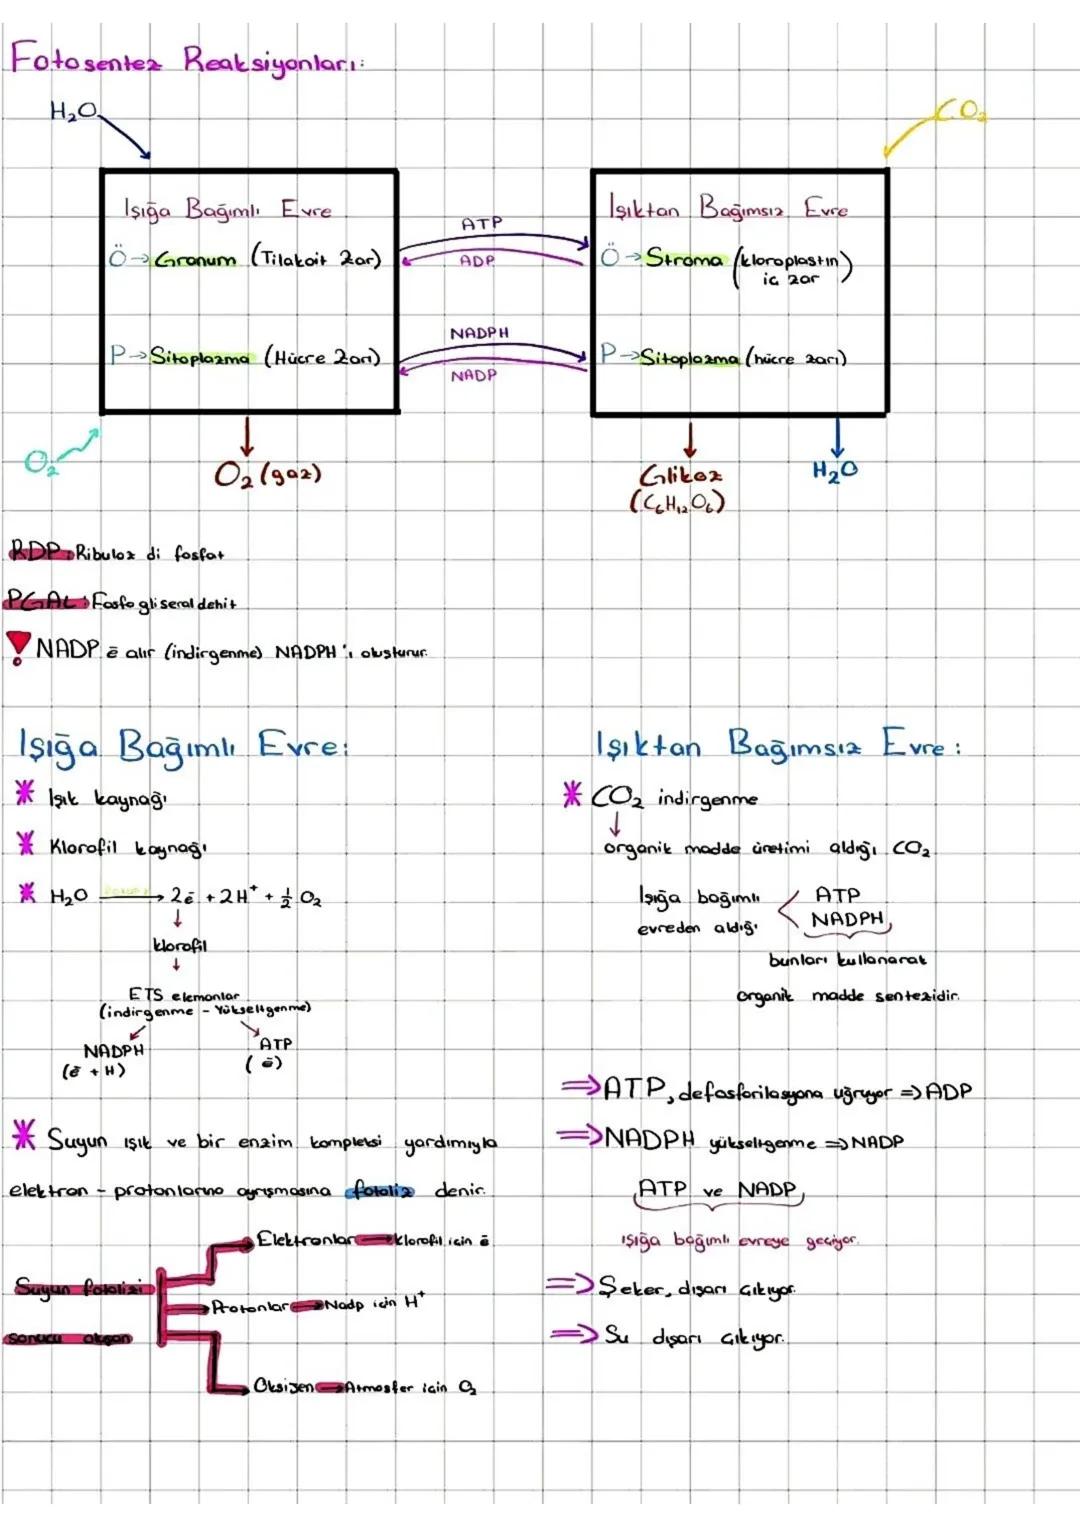 Fotosentez Reaksiyonları:
H₂O
CO₂
Işığa Bağımlı Evre
Ö→Granum (Tilakoit Zar)
P→Sitoplazma (Hücre Zarı)
ATP
ADP
NADPH
NADP
Işıktan Bağımsız Evre
Ö→Stroma (kloroplastın
iç zar)
P→Sitoplazma (hücre zarı)
O₂
O₂ (gaz)
Glikoz
(C₆H₁₂O₆)
H₂O
RDP: Ribuloz di fosfat
PGAL: Fosfo gliseral dehit
! NADP ē alır (indirgenme) NADPH 'ı oluşturur.
Işığa Bağımlı Evre:
* Işık kaynağı
* Klorofil kaynağı
* H₂O → 2ē + 2H⁺ + ½ O₂
↓
klorofil
↓
ETS elemanlar
(indirgenme - Yükseltgenme)
NADPH
(ē + H)
ATP
(ē)
* Suyun ışık ve bir enzim kompleksi yardımıyla
elektron - protonlarına ayrışmasına fotoliz denir.
Suyun fotolizi
sonucu oluşan
Elektronlar → klorofil için ē
Protonlar → Nadp için H⁺
Oksijen → Atmosfer için O₂
Işıktan Bağımsız Evre:
* CO₂ indirgenme
↓
organik madde üretimi aldığı CO₂
Işığa bağımlı
evreden aldığı
ATP
NADPH
bunları kullanarak
organik madde sentezidir.
⇒ATP, defosforilasyona uğruyor ⇒ ADP
⇒NADPH yükseltgenme ⇒ NADP
ATP ve NADP
ışığa bağımlı evreye geçiyor.
⇒Şeker, dışarı çıkıyor.
⇒Su dışarı çıkıyor.